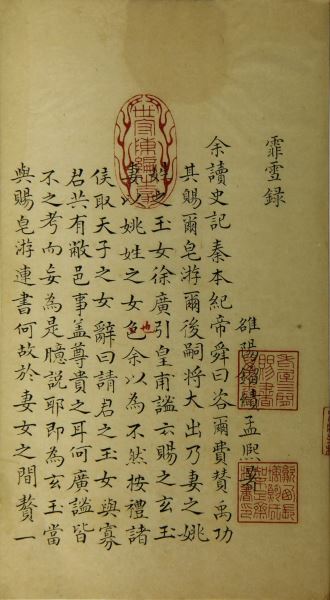 霏雪録
雒陽鎦績孟熙著
余讀史記秦本紀帝舜曰咨爾費賛禹功
其賜爾皂游爾後嗣將大出乃妻之姚
姓之玉女徐廣引皇甫謐云賜之玄玉
妻以姚姓之女色余以為不然按禮諸
也
侯取天子之女辭曰請君之玉女與寡
君共有敝邑事盖尊貴之耳何廣謐皆
不之考而妄為是臆説耶即為玄玉當
與賜皂游連書何故於妻女之間贅一